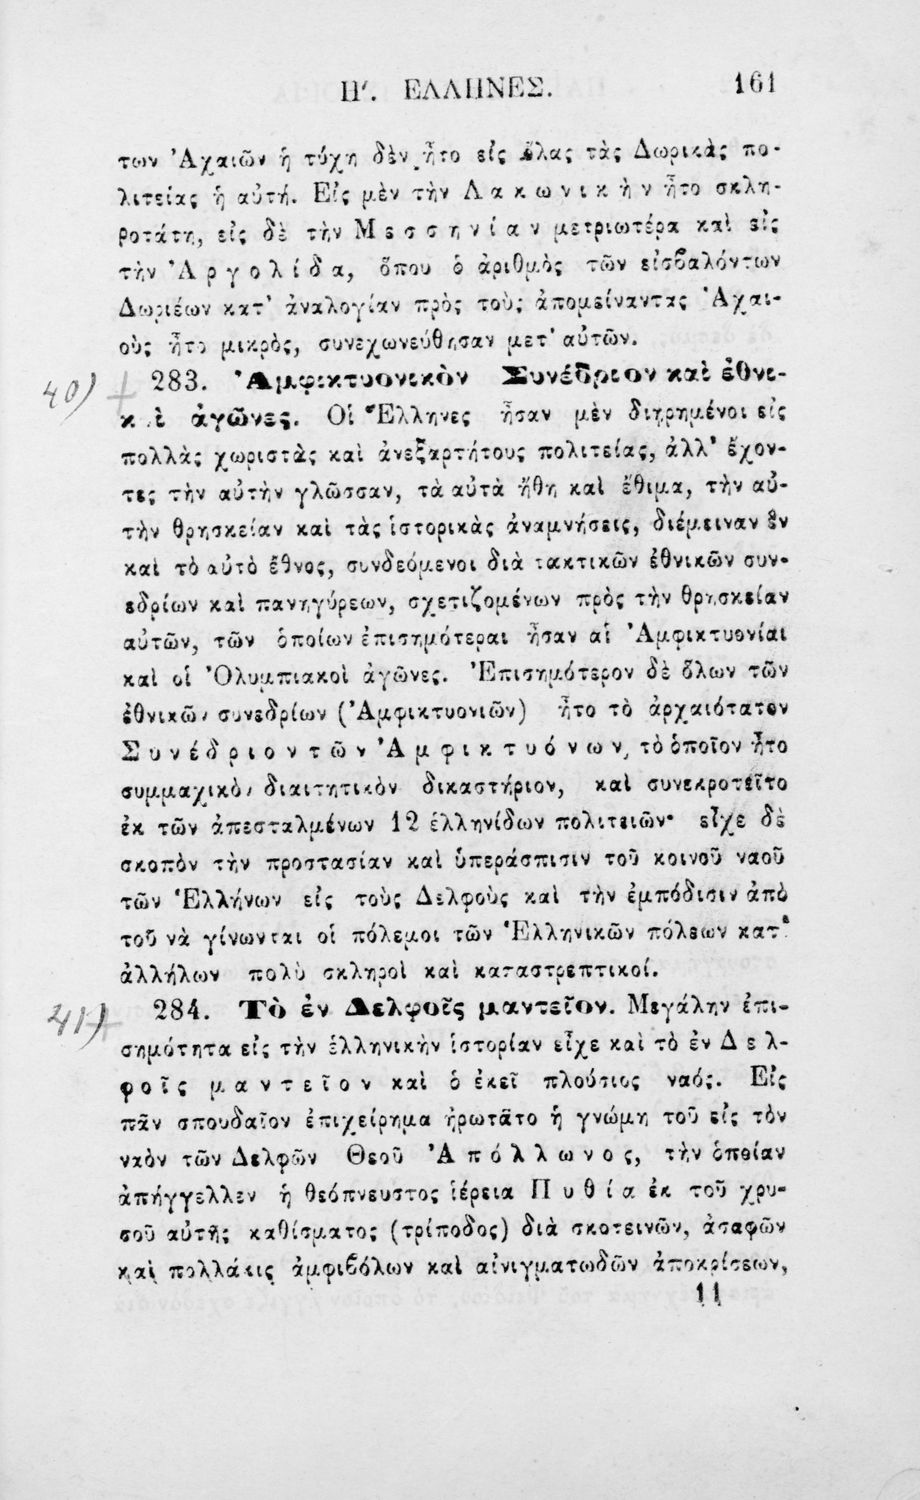 Η′. ΕΛΛΗΝΕΣ. 161
των Ἀχαιῶν ἡ τύχη δὲν ἦτο εἰς ὅλας τὰς Δωρικὰς πο-
λιτείας ἡ αὐτή. Εἰς μὲν τὴν Λακωνικὴν ἦτο σκλη-
ροτάτη, εἰς δὲ τὴν Μεσσηνίαν μετριωτέρα καὶ εἰς
τὴν Ἀργολίδα, ὅπου ὁ ἀριθμὸς τῶν εἰσβαλόντων
Δωριέων κατ' ἀναλογίαν πρὸς τοὺς ἀπομείναντας Ἀχαι-
οὺς ἦτο μικρὸς, συνεχωνεύθησαν μετ' αὐτῶν.
40) + 283. Ἀμφικτυονικὸν Συνέδριον καὶ ἐθνι-
κοὶ ἀγῶνες. Οἱ Ἕλληνες ἦσαν μὲν διῃρημένοι εἰς
πολλὰς χωριστὰς καὶ ἀνεξαρτήτους πολιτείας, ἀλλ' ἔχον-
τες τὴν αὐτὴν γλῶσσαν, τὰ αὐτὰ ἤθη καὶ ἔθιμα, τὴν αὐ-
τὴν θρησκείαν καὶ τὰς ἱστορικὰς ἀναμνήσεις, διέμειναν ἓν
καὶ τὸ αὐτὸ ἔθνος, συνδεόμενοι διὰ τακτικῶν ἐθνικῶν συν-
εδρίων καὶ πανηγύρεων, σχετιζομένων πρὸς τὴν θρησκείαν
αὐτῶν, τῶν ὁποίων ἐπισημότεραι ἦσαν αἱ Ἀμφικτυονίαι
καὶ οἱ Ὀλυμπιακοὶ ἀγῶνες. Ἐπισημότερον δὲ ὅλων τῶν
ἐθνικῶν συνεδρίων (Ἀμφικτυονιῶν) ἦτο τὸ ἀρχαιότατον
Συνέδριον τῶν Ἀμφικτυόνων, τὸ ὁποῖον ἦτο
συμμαχικὸν διαιτητικὸν δικαστήριον, καὶ συνεκροτεῖτο
ἐκ τῶν ἀπεσταλμένων 12 ἑλληνίδων πολιτειῶν· εἶχε δὲ
σκοπὸν τὴν προστασίαν καὶ ὑπεράσπισιν τοῦ κοινοῦ ναοῦ
τῶν Ἑλλήνων εἰς τοὺς Δελφοὺς καὶ τὴν ἐμπόδισιν ἀπὸ
τοῦ νὰ γίνωνται οἱ πόλεμοι τῶν Ἑλληνικῶν πόλεων κατ'
ἀλλήλων πολὺ σκληροὶ καὶ καταστρεπτικοί.
41) + 284. Τὸ ἐν Δελφοῖς μαντεῖον. Μεγάλην ἐπι-
σημότητα εἰς τὴν ἑλληνικὴν ἱστορίαν εἶχε καὶ τὸ ἐν Δελ-
φοῖς μαντεῖον καὶ ὁ ἐκεῖ πλούσιος ναός. Εἰς
πᾶν σπουδαῖον ἐπιχείρημα ἠρωτᾶτο ἡ γνώμη τοῦ εἰς τὸν
ναὸν τῶν Δελφῶν Θεοῦ Ἀπόλλωνος, τὴν ὁποίαν
ἀπήγγελλεν ἡ θεόπνευστος ἱέρεια Πυθία ἐκ τοῦ χρυ-
σοῦ αὐτῆς καθίσματος (τρίποδος) διὰ σκοτεινῶν, ἀσαφῶν
καὶ πολλάκις ἀμφιβόλων καὶ αἰνιγματωδῶν ἀποκρίσεων,
11